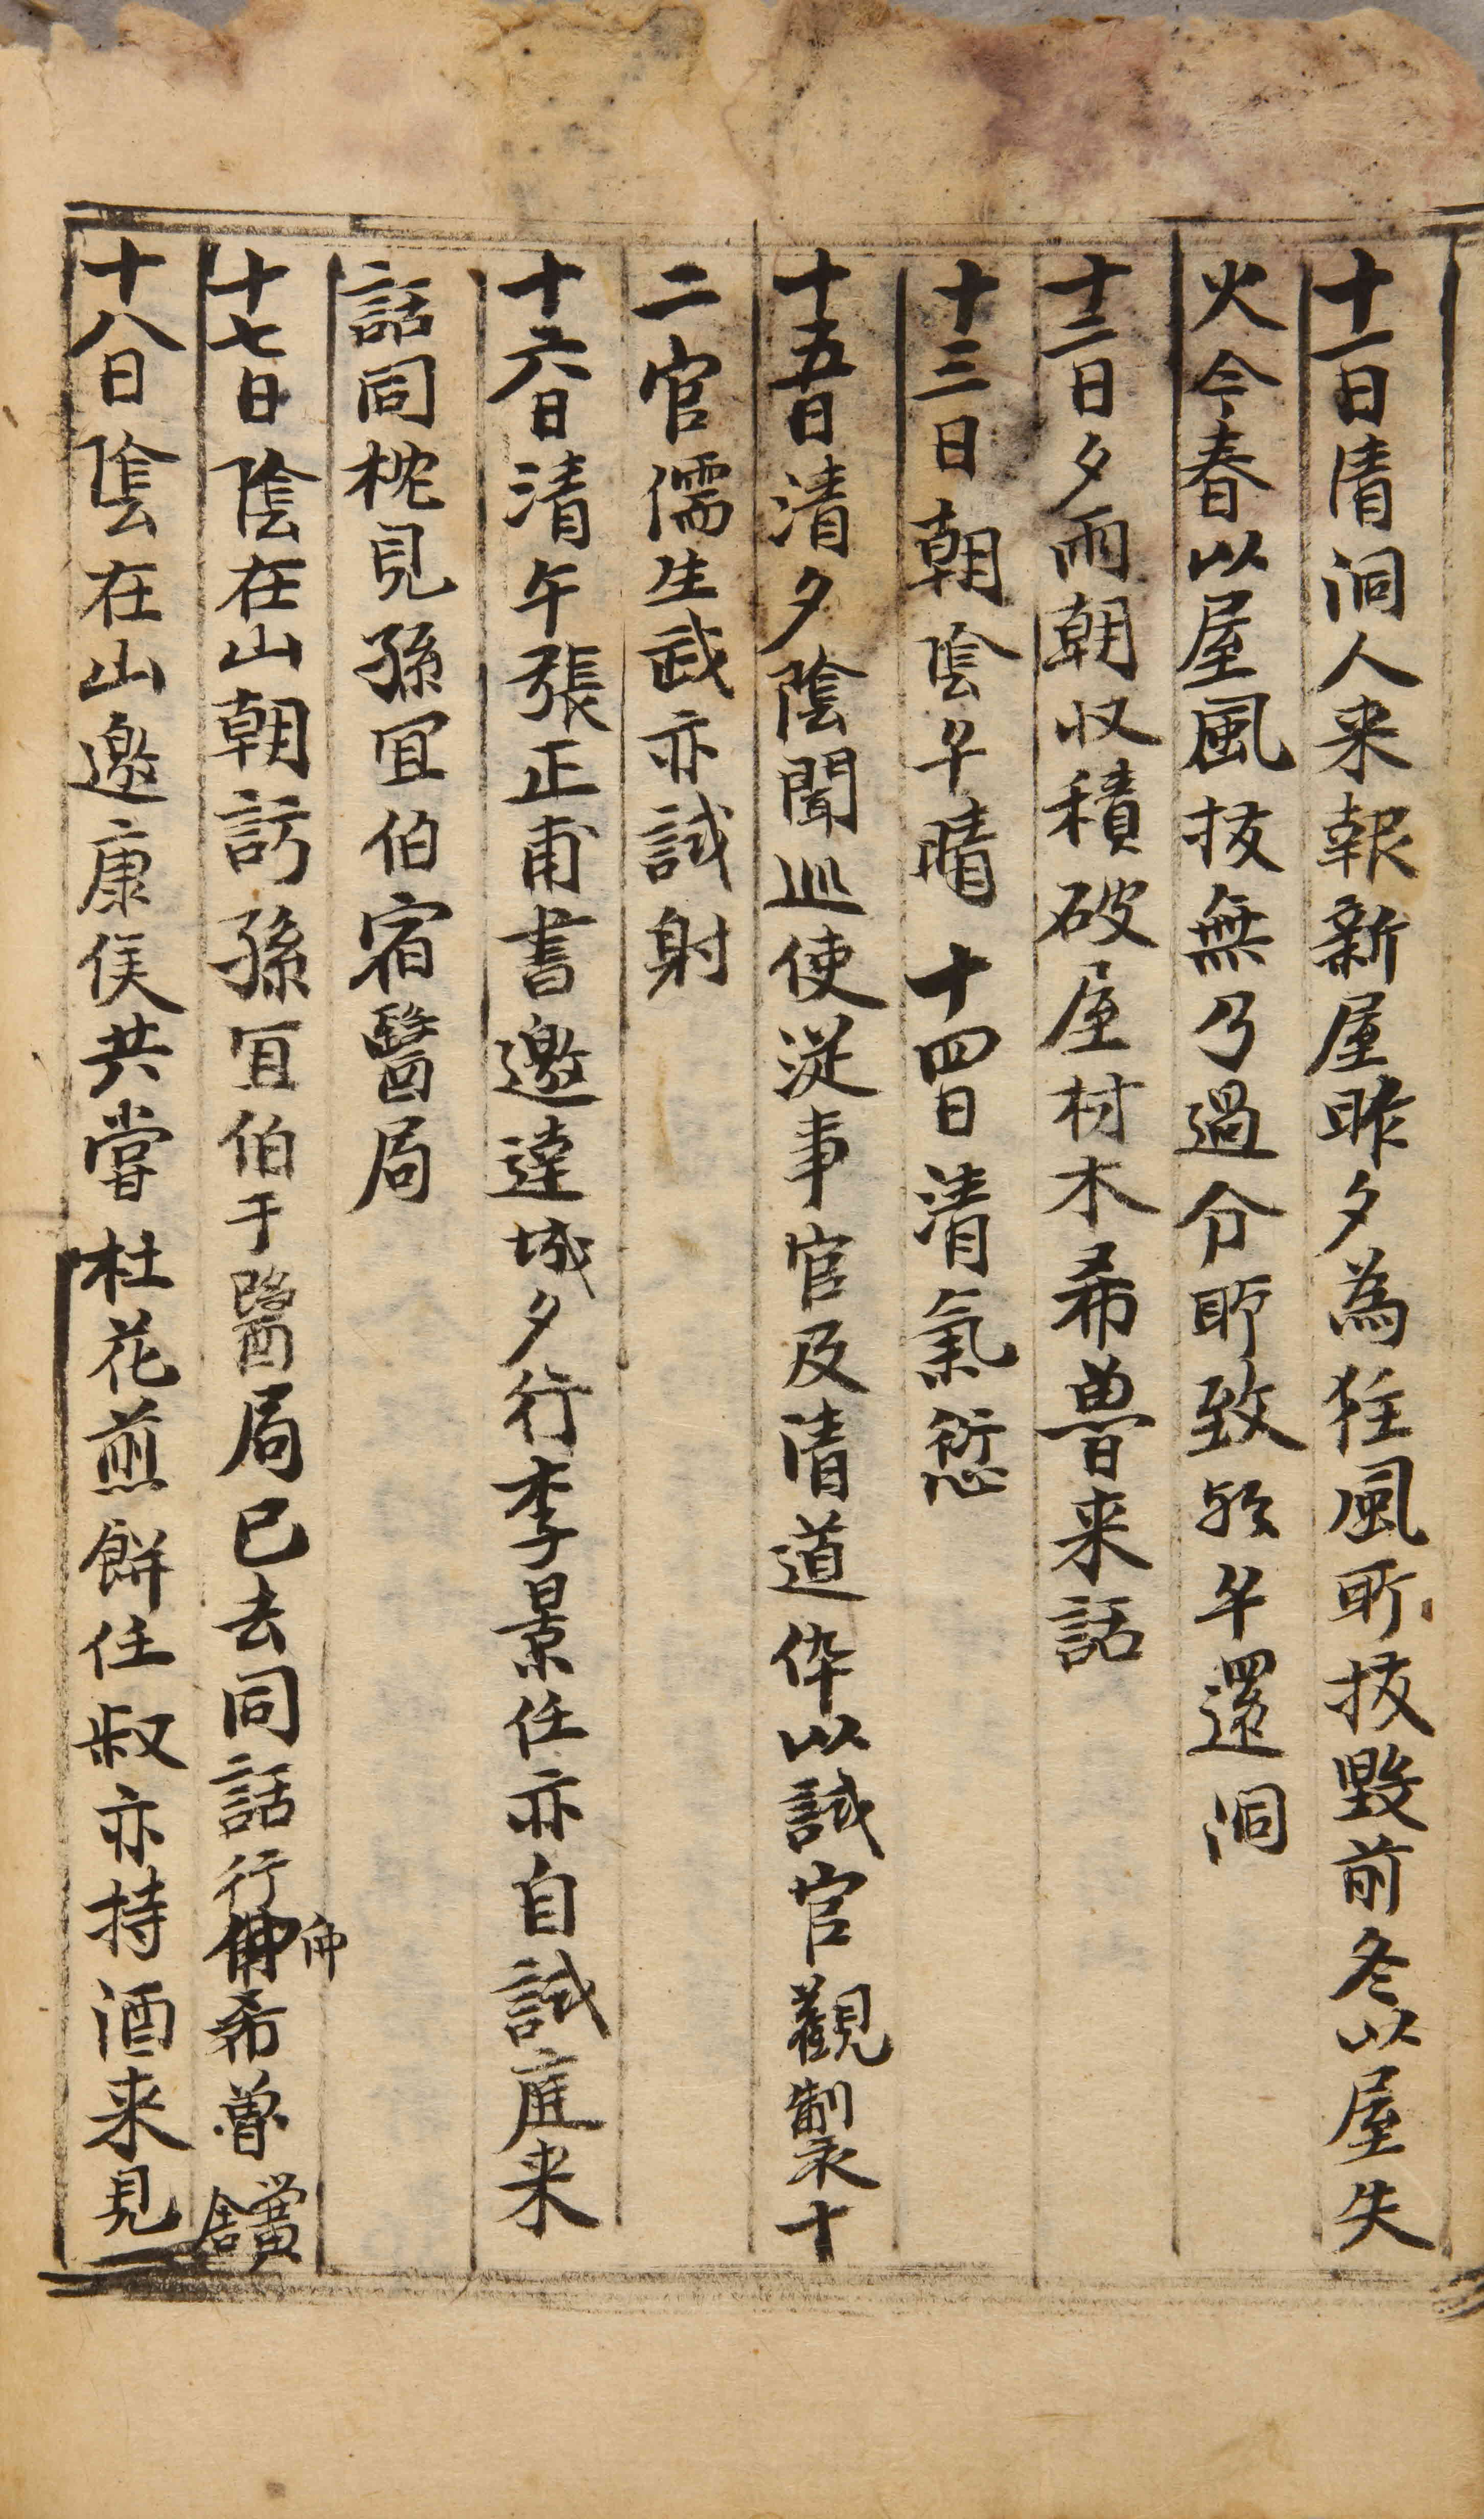 十一日清洞人来報新屋昨夕為狂風所拔毀前冬以屋失
火今春以屋風拔無乃過分所致欤午還洞
十二日夕雨朝収積破屋材木希魯来話
十三日朝陰午晴 十四日清氣愆
十五日清夕陰聞巡使従事官及清道倅以試官觀製十
二官儒生武亦試射
十六日清午張正甫書邀達城夕行李景任亦自試庭来
話同枕見孫冝伯宿醫局
十七日陰在山朝訪孫冝伯于醫局已去同話行甫希魯
十八日陰在山邀康侯共嘗杜花煎餅任叔亦持酒来見